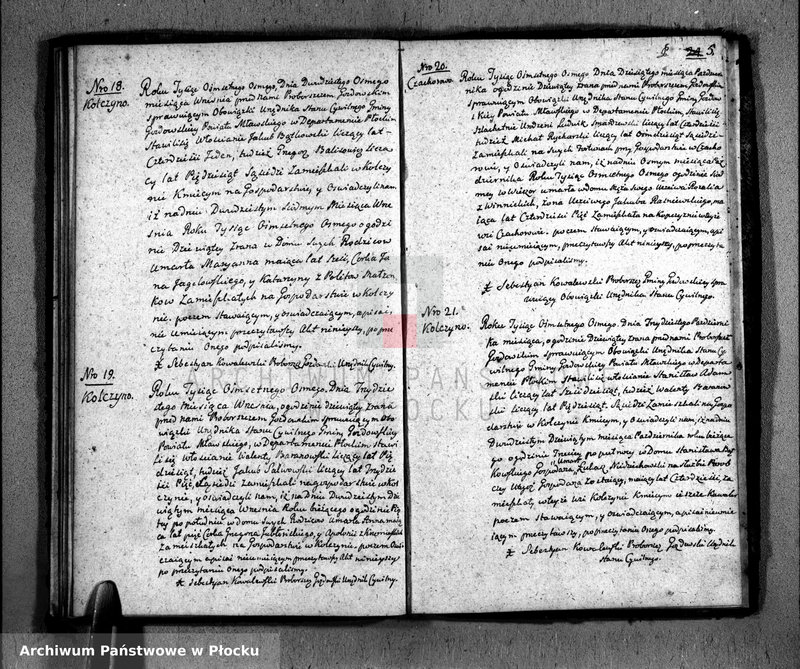 Nro 18.
Kołczyno.
Roku Tysiąc Osmsetnego Osmego, Dnia Dwudziestego Osmego
miesiąca Września przed nami Proboszczem
sprawującym Obowiązki Urzędnika Stanu Cywilnego Gminy
Powiatu Mławskiego w Departamencie Płockim
Stawili się Włoscianie Jakub liczący lat
Czterdziesci Jeden, tudzież Grzegorz licza-
cy lat Piędziesiąt Sąsiedzi Zamieszkali w Kołczy
nie Kmiecym na Gospodarstwie, y Oswiadczyli nam
iż na dniu Dwudziestym Siodmym Miesiąca Wrze
śnia Roku Tysiąc Osmsetnego Osmego o godzi
nie Dziewiątey Zrana w Domu Swych Rodzicow
Umarła Maryanna maiąca lat Szesc, Corka Ja
na y Katarzyny z Małżon
kow Zamieszkałych na Gospodarstwie w Kołczy
nie. poczem stawaiącym, y oswiadczaiącym, a pisać
nie umieiącym przeczytawszy Akt ninieyszy, po prze
czytaniu Onego podpisalismy.
X Sebestyan Kowalewski Proboszcz Urzędnik Cywilny.
Nro 19.
Kołczyno.
Roku Tysiąc Osmsetnego Osmego. Dnia Trzydzie
stego Miesiąca Września, o godzinie dziewiątey Zrana
przed nami Proboszczem sprawuiącym Obo
wiązki Urzędnika Stanu Cywilnego Gminy
Powiatu Mławskiego, w Departamencie Płockim, Stawi
li się Włoscianie Walenty Baranowski liczący lat Pię
dziesiąt, tudzież Jakub liczący lat Trzydzie
ści Pięć, Sąsiedzi Zamieszkali na gospodarstwie w Koł
czynie, y oswiadczyli nam, iż na dniu Dwudziestym Dzie
wiątym miesiąca Września Roku bieżącego o godzinie Pią
tey po południu w domu Swych Rodzicow Umarła Anna maią
ca lat pięć Corka Grzegorza y Apolonii z
Zamieszkałych na Gospodarstwie w Kołczynie. poczem
pisać nie umieiącym przeczytawszy Akt ninieyszy
po przeczytaniu Onego podpisalismy.
X Sebestyan Kowalewski Proboszcz Urzędnik Cywilny.
24 5.
Nro 20.
Czachorowo.
Roku Tysiąc Osmsetnego Osmego Dnia Dziesiątego miesiąca Paździer
nika o godzinie Dziewiątey Zrana przed nami Proboszczem
sprawuiącym Obowiązki Urzędnika Stanu Cywilnego Gminy
Powiatu Mławskiego w Departamencie Płockim, Stawili się
Szlachetnie Urodzeni Ludwik liczący lat Czterdziesci
tudzież Michał liczący lat Osmdziesiąt Sąsiedzi
Zamieszkali na Swych przy Gospodarstwie w Czacho
rowie, y Oswiadczyli nam, iż na dniu Osmym miesiąca Paź
dziernika Roku Tysiąc Osmsetnego Osmego o godzinie
w Wieczor umarła w domu Męża Swego Uczciwa Rozalia
z Winnickich, żona Uczciwego Jakuba ma
iąca lat Czterdziesci Pięć Zamieszkała na
wsi Czachorowie. poczem stawaiącym, y oswiadczaiącym, a pi
sać nieumieiącym, przeczytawszy Akt ninieyszy, po przeczyta
niu Onego podpisalismy.
X Sebestyan Kowalewski Proboszcz Gminy spra
wuiący Obowiązki Urzędnika Stanu Cywilnego.
Nro 21.
Kołczyno.
Roku Tysiąc Osmsetnego Osmego. Dnia Trzydziestego Paździer
nika miesiąca, o godzinie dziewiątey Zrana przed nami Proboszczem
sprawuiącym Obowiązki Urzędnika Stanu Cy
wilnego Gminy Powiatu Mławskiego w Departa
mencie Płockim Stawili się włoscianie Stanisław Adam
ski liczący lat Szescdziesiąt, tudzież Walenty Baranow
ski liczący lat Pięćdziesiąt, Sąsiedzi Zamieszkali na Gospo
darstwie w Kołczynie Kmiecym, y Oswiadczyli nam, iż na dniu
Dwudziestym Dziewiątym miesiąca Października roku bieżące
go o godzinie Trzeciey po południu w domu Stanisława
Gospodarza Umarł Łukasz na służbie Parob
czey Gospodarza zostaiący, maiący lat Czterdziesci, za
mieszkały w teyże wsi Kołczynie Kmiecym
poczem Stawaiącym, y Oswiadczaiącym, a pisać nieumie
iącym przeczytawszy, po przeczytaniu Onego podpisalismy.
X Sebestyan Kowalewski Proboszcz Urzędnik
Stanu Cywilnego.
Archiwum Państwowe w Płocku